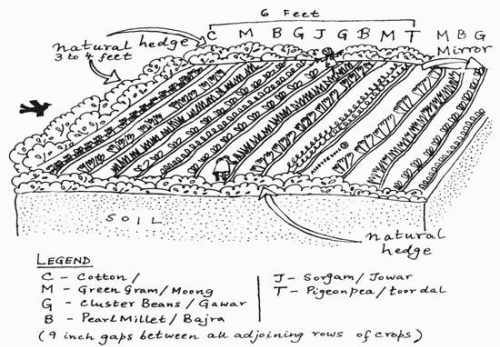 6 Feet
C M B G J G B M T M B G
Mirror
natural hedge
3 to 4 feet
SOIL
natural hedge
LEGEND
C - Cotton/
M - Green Gram/Moong
G - Cluster Beans/Gawar
B - Pearl Millet/Bajra
J - Sorgam/Jowar
T - Pigeonpea/toor dal
(9 inch gaps between all adjoining rows of crops)